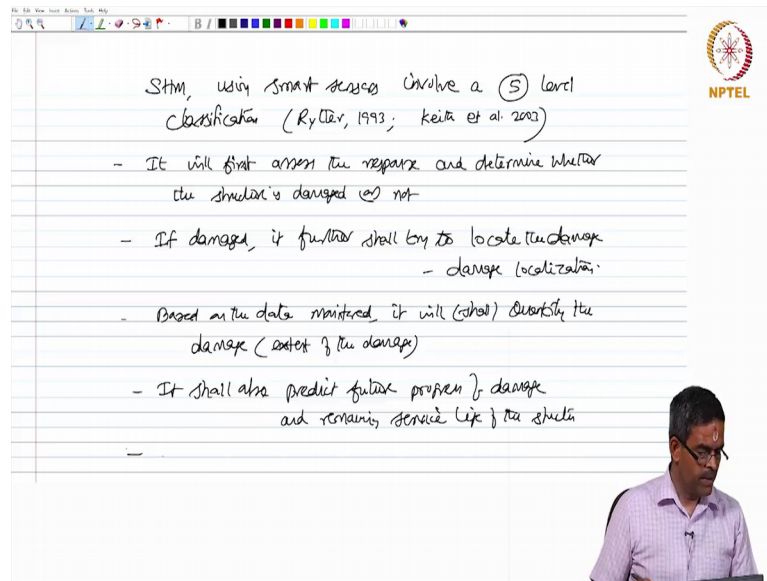 File Edit View Insert Actions Tools Help
B I
NPTEL
SHM, using smart sensors involve a 5 level
classification (Rytter, 1993; Keith et al. 2003)
- It will first assess the response and determine whether
the structure is damaged or not
- If damaged, it further shall try to locate the damage
- damage localization.
- Based on the data monitored, it will (shall) Quantify the
damage (extent of the damage)
- It shall also predict future progress of damage
and remaining service life of the structure
-